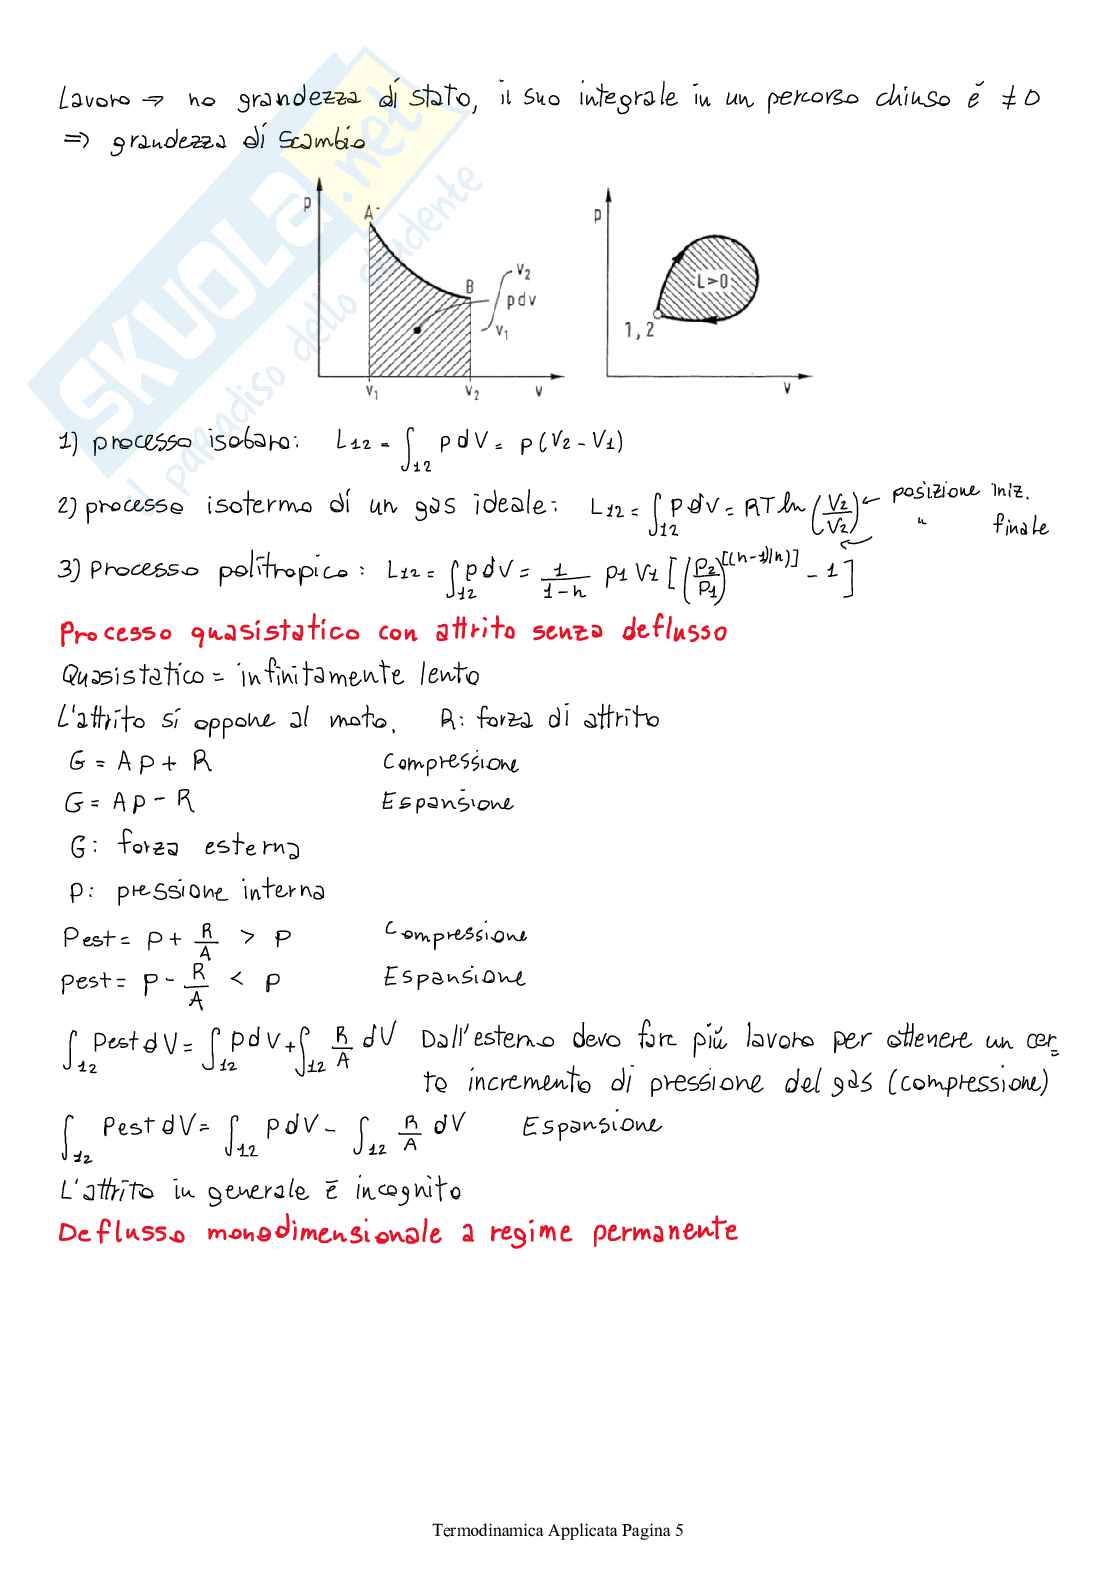 Lavoro => no grandezza di stato, il suo integrale in un percorso chiuso è ≠ 0
=> grandezza di scambio
SKUOLA.net
il paradiso dello studente
p A B ∫ v2 p dv v1 v1 v2 v
p L>0 1,2 v
1) processo isobaro: L12 = ∫12 p dV = p(V2 - V1)
2) processo isotermo di un gas ideale: L12 = ∫12 p dV = RT ln (V2/V2) ← posizione iniz.
" finale
3) Processo politropico: L12 = ∫12 p dV = 1/(1-n) p1 V1 [(P2/P1)^[(n-1)/n)] - 1]
Processo quasistatico con attrito senza deflusso
Quasistatico = infinitamente lento
L'attrito si oppone al moto. R: forza di attrito
G = Ap + R Compressione
G = Ap - R Espansione
G: forza esterna
p: pressione interna
Pest = p + R/A > p Compressione
pest = p - R/A < p Espansione
∫12 Pest dV = ∫12 p dV + ∫12 R/A dV Dall'esterno devo fare più lavoro per ottenere un cer-
to incremento di pressione del gas (compressione)
∫12 Pest dV = ∫12 p dV - ∫12 R/A dV Espansione
L'attrito in generale è incognito
Deflusso monodimensionale a regime permanente
Termodinamica Applicata Pagina 5